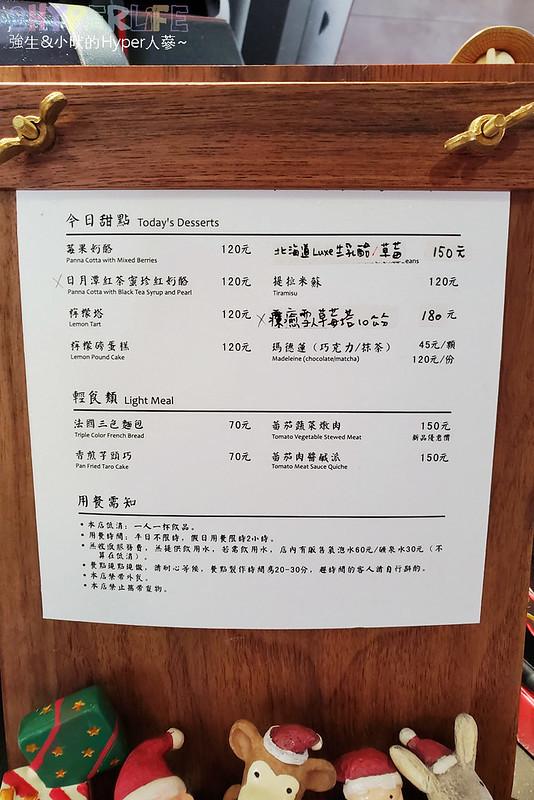 HYPERLIFE
強生&小吠的Hyper人蔘~
今日甜點 Today's Desserts
莓果奶酪 120元
Panna Cotta with Mixed Berries
北海道Luxe生乳酪/草莓 150元
eans
X 日月潭紅茶蜜珍紅奶酪 120元
Panna Cotta with Black Tea Syrup and Pearl
提拉米蘇 120元
Tiramisu
檸檬塔 120元
Lemon Tart
X 療癒雪人草莓塔10份 180元
檸檬磅蛋糕 120元
Lemon Pound Cake
瑪德蓮（巧克力/抹茶） 45元/顆
Madeleine (chocolate/matcha) 120元/份
輕食類 Light Meal
法國三色麵包 70元
Triple Color French Bread
番茄蔬菜燉肉 150元
Tomato Vegetable Stewed Meat 新品優惠價
香煎芋頭巧 70元
Pan Fried Taro Cake
番茄肉醬鹹派 150元
Tomato Meat Sauce Quiche
用餐需知
*本店低消：一人一杯飲品。
*用餐時間：平日不限時，假日用餐限時2小時。
*無收服務費，無提供飲用水，若需飲用水，店內有販售氣泡水60元/礦泉水30元（不
算在低消）。
*餐點現點現做，請耐心等候，餐點製作時間為20-30分，趕時間的客人請自行斟酌。
*本店禁帶外食。
*本店禁止攜帶寵物。